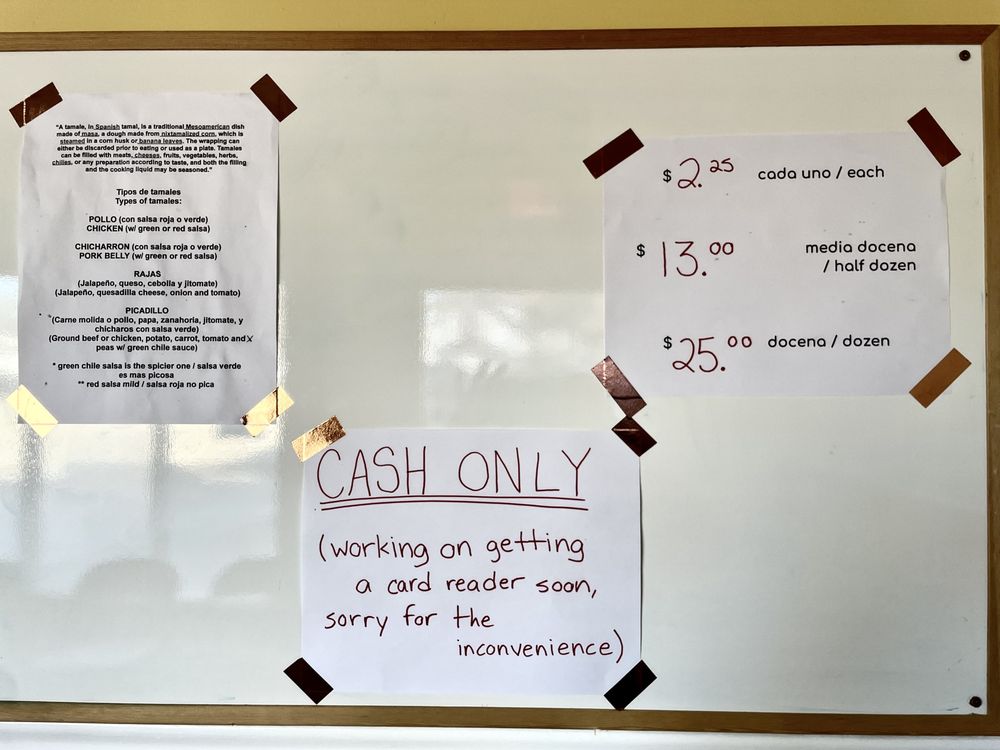 "A tamale, in Spanish tamal, is a traditional Mesoamerican dish
made of masa, a dough made from nixtamalized corn, which is
steamed in a corn husk or banana leaves. The wrapping can
either be discarded prior to eating or used as a plate. Tamales
can be filled with meats, cheeses, fruits, vegetables, herbs,
chilies, or any preparation according to taste, and both the filling
and the cooking liquid may be seasoned."
Tipos de tamales
Types of tamales:
POLLO (con salsa roja o verde)
CHICKEN (w/ green or red salsa)
CHICHARRON (con salsa roja o verde)
PORK BELLY (w/ green or red salsa)
RAJAS
(Jalapeño, queso, cebolla y jitomate)
(Jalapeño, quesadilla cheese, onion and tomato)
PICADILLO
(Carne molida o pollo, papa, zanahoria, jitomate, y
chicharos con salsa verde)
(Ground beef or chicken, potato, carrot, tomato and
peas w/ green chile sauce)
* green chile salsa is the spicier one / salsa verde
es mas picosa
** red salsa mild / salsa roja no pica
$ 2.25 cada uno / each
$ 13.00 media docena
/ half dozen
$ 25.00 docena / dozen
CASH ONLY
(working on getting
a card reader soon,
sorry for the
inconvenience)